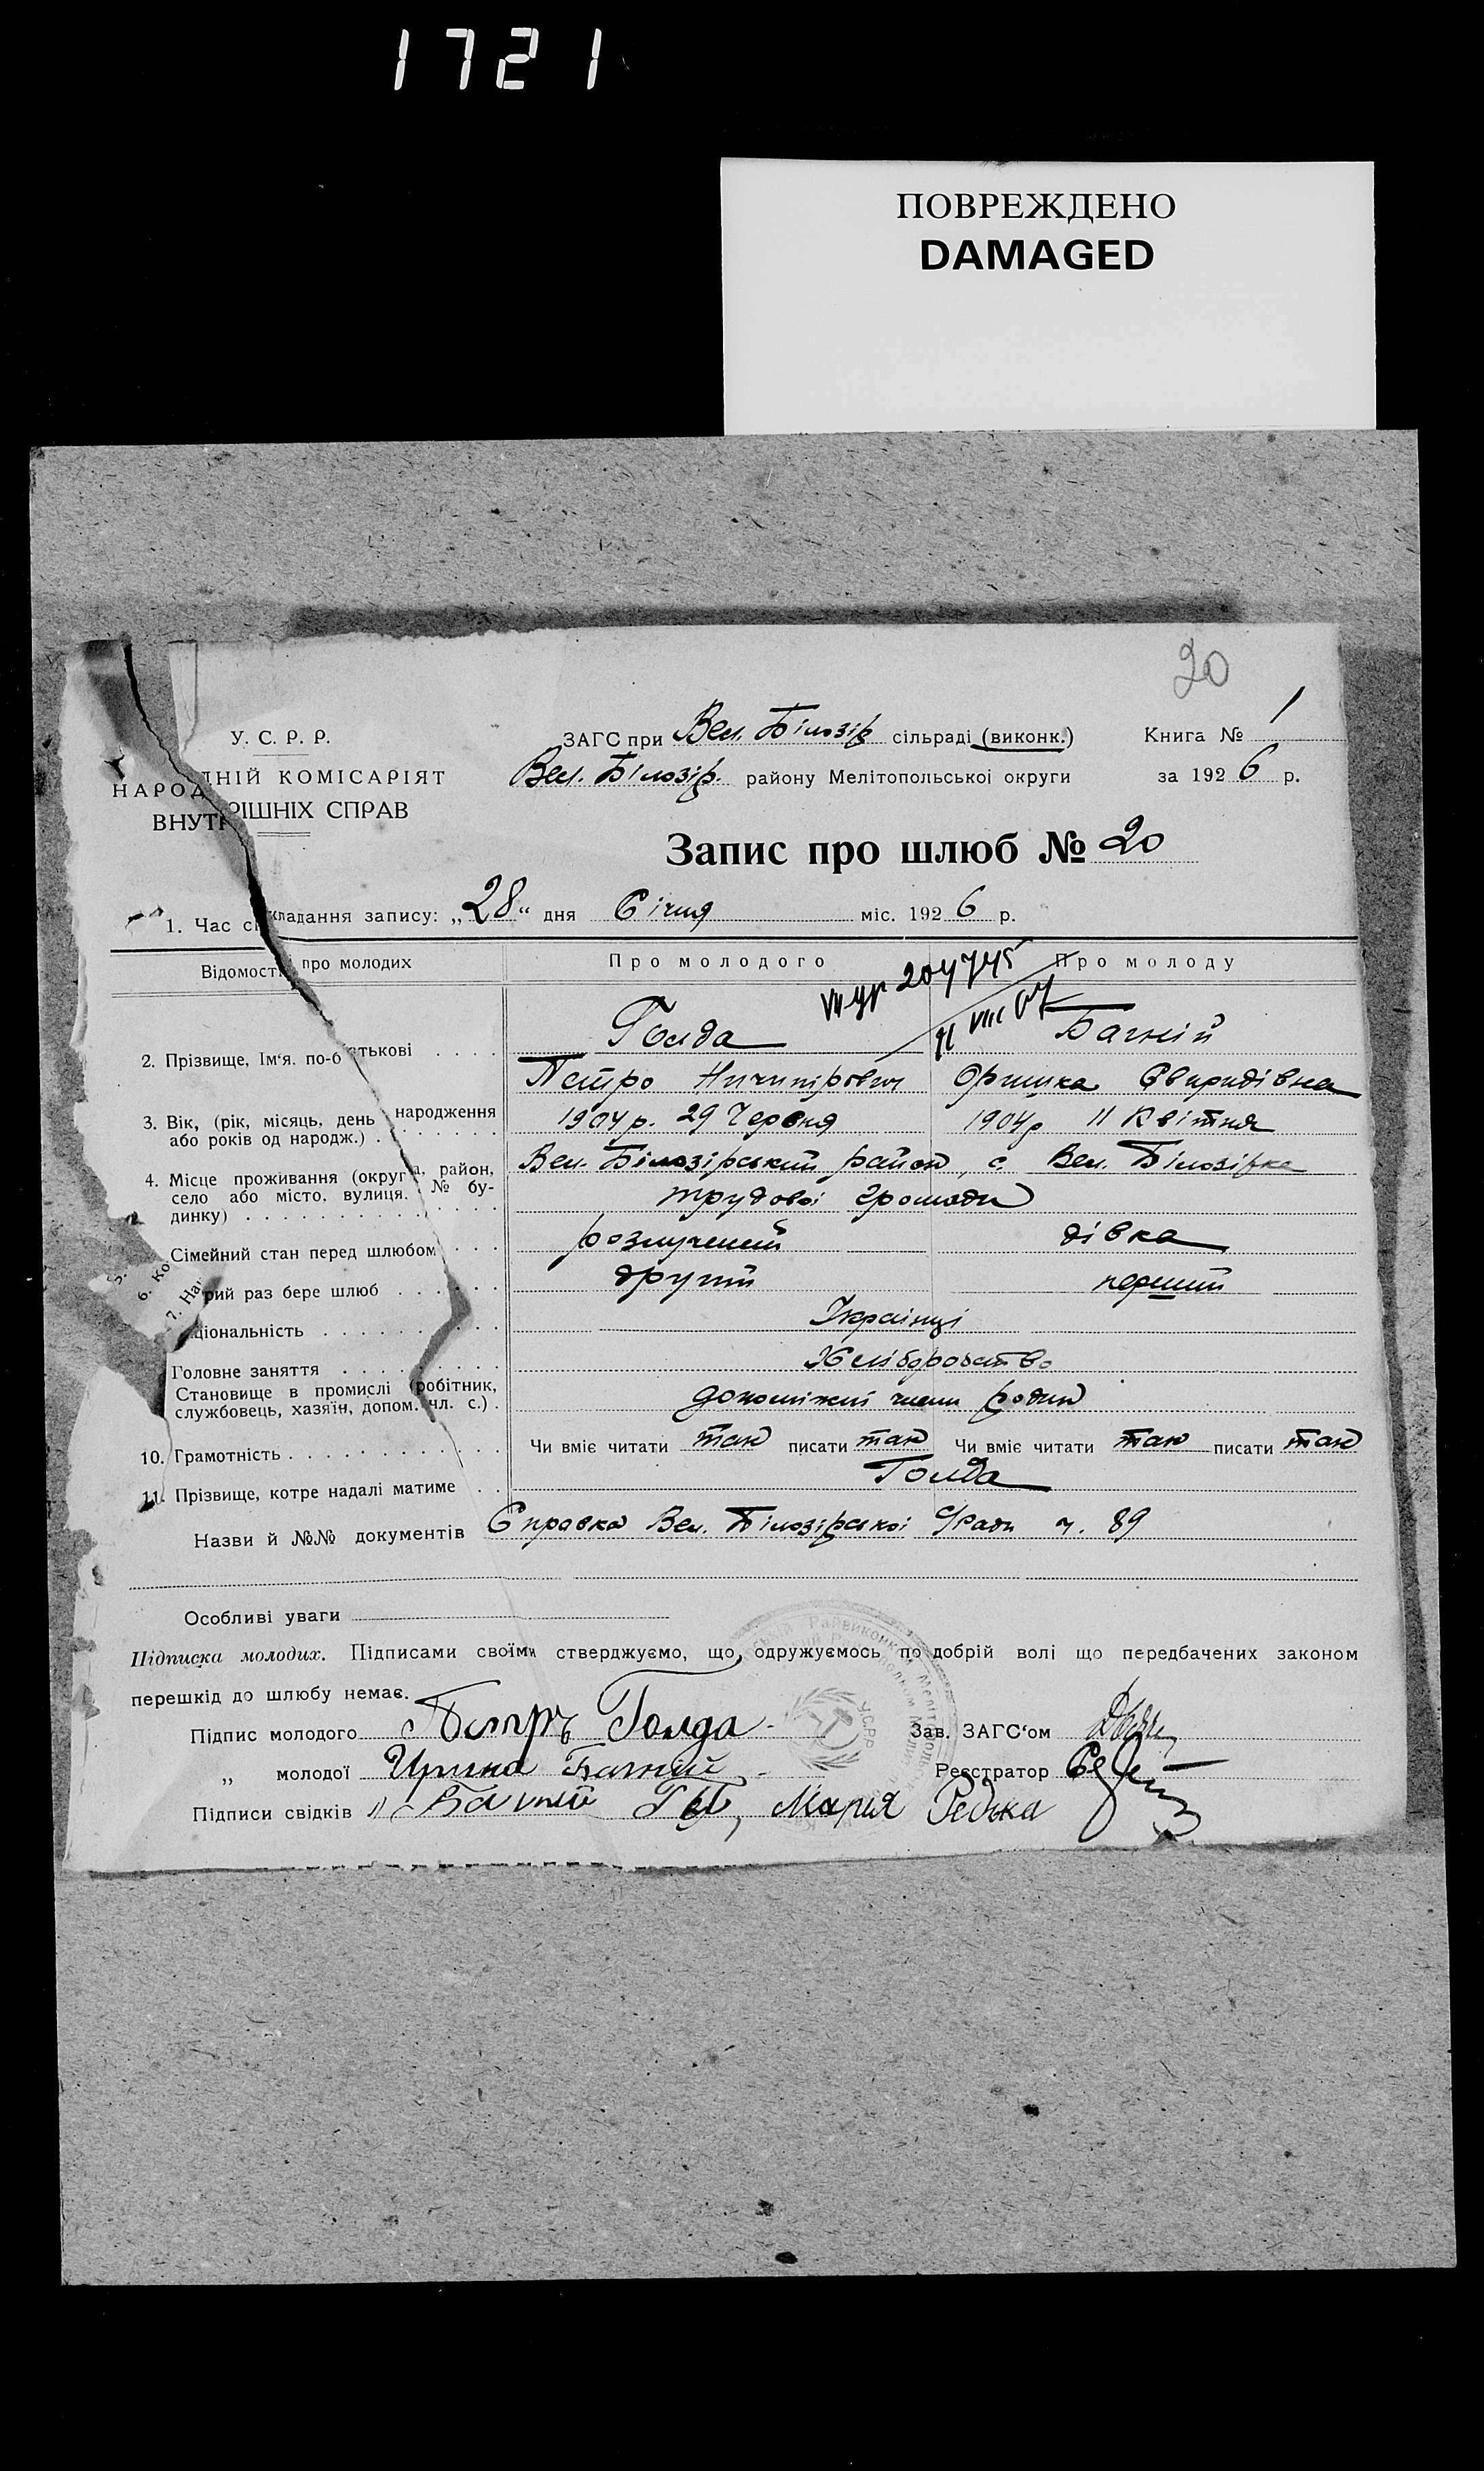 1721
ПОВРЕЖДЕНО
DAMAGED
20
У. С. Р. Р.
ЗАГС при Вел. Білозір сільраді (виконк.)
Книга № 1
НАРОДНІЙ КОМІСАРІЯТ
Вел. Білозір. району Мелітопольської округи
за 1926 р.
ВНУТРІШНІХ СПРАВ
Запис про шлюб № 20
1. Час складання запису: „28“ дня Січня міс. 1926 р.
Відомості про молодих
Про молодого
Про молоду
204745
2. Прізвище, Ім'я. по-батькові . . . .
Голда
Багній
Петро Ничипірович
Оришка Свиридівна
3. Вік, (рік, місяць, день народження
або років од народж.) . . . . . .
1904 р. 29 Червня
1904 р 11 Квітня
4. Місце проживання (округа, район,
село або місто, вулиця. № бу-
динку) . . . . . . . . . . . . . .
Вел. Білозірський район, с. Вел. Білозірка
трудової громади
5.
Сімейний стан перед шлюбом . . .
розлучений
дівка
6. Ко
рий раз бере шлюб . . . . . .
другий
перший
7. На
ціональність . . . . . . . . . .
Українці
Головне заняття . . . . . . . . .
Хліборобство
Становище в промислі (робітник,
службовець, хазяїн, допом. чл. с.) .
допоміжний член родин
10. Грамотність . . . . . . . . . . . .
Чи вміє читати так писати так
Чи вміє читати так писати так
11. Прізвище, котре надалі матиме . .
Голда
Назви й №№ документів Справка Вел. Білозірської С/ради ч. 89
Особливі уваги
Підписка молодих. Підписами своїми стверджуємо, що одружуємось по добрій волі що передбачених законом
перешкід до шлюбу немає.
Підпис молодого Петръ Голда
Зав. ЗАГС'ом
„ молодої Ирина Багній
Реєстратор
Підписи свідків 1) Багній Мария Редька
У.С.Р.Р.